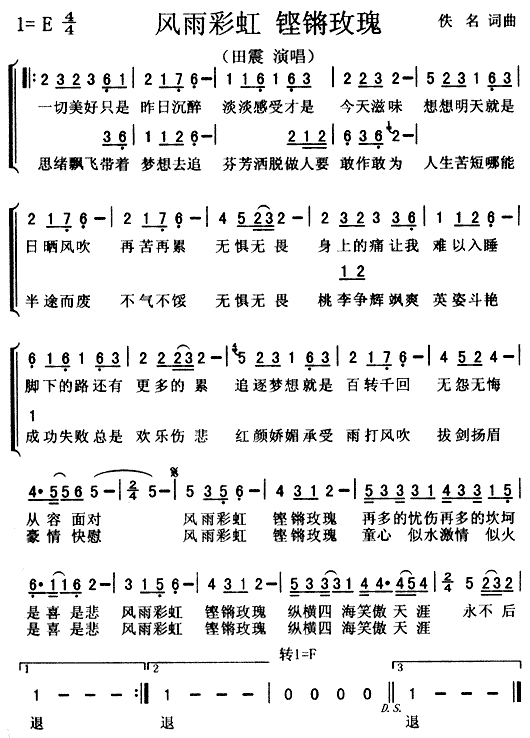 1=E 4/4
风雨彩虹 铿锵玫瑰
佚 名 词曲
（田震 演唱）
2 3 2 3 6 1 | 2 1 7 6 - | 1 1 6 1 6 3 | 2 1 7 6 - | 5 2 3 1 6 3 |
一切美好只是 昨日沉醉 淡淡感受才是 今天滋味 想想明天就是
3 6 2 1 2 6 3 6 2 -
思绪飘飞带着 梦想去追 芬芳洒脱做人要 敢作敢为 人生苦短哪能
2 1 7 6 - | 2 1 7 6 - | 4 5 2 3 2 - | 2 3 2 3 3 6 | 1 1 2 6 - |
日晒风吹 再苦再累 无惧无畏 身上的痛让我 难以入睡
1 2
半途而废 不气不馁 无惧无畏 桃李争辉飒爽 英姿斗艳
6 1 6 1 6 3 | 2 2 2 3 2 - | 5 2 3 1 6 3 | 2 1 7 6 - | 4 5 2 4 - |
脚下的路还有 更多的 累 追逐梦想就是 百转千回 无怨无悔
1
成功失败总是 欢乐伤 悲 红颜娇媚承受 雨打风吹 拔剑扬眉
4· 5 5 6 5 - | 2/4 5 - | 5 3 5 6 - | 4 3 1 2 - | 5 3 3 3 5 3 3 1 |
从容 面对 风雨彩虹 铿锵玫瑰 再多的忧伤再多的坎坷
豪情 快慰 风雨彩虹 铿锵玫瑰 童心 似水激情 似火
6· 1 1 6 2 - | 3 1 5 6 - | 4 3 1 2 - | 5 3 3 1 | 4· 4 4 5 4 - | 2/4 5 2 3 2 |
是喜 是悲 风雨彩虹 铿锵玫瑰 纵横四 海笑傲 天 涯 永不 后
是喜 是悲 风雨彩虹 铿锵玫瑰 纵横四 海笑傲 天 涯
转1=F
1 2 3
1 - - - :| 1 - - - | 0 0 0 0 | 1 - - - |
D.S.
退 退 退